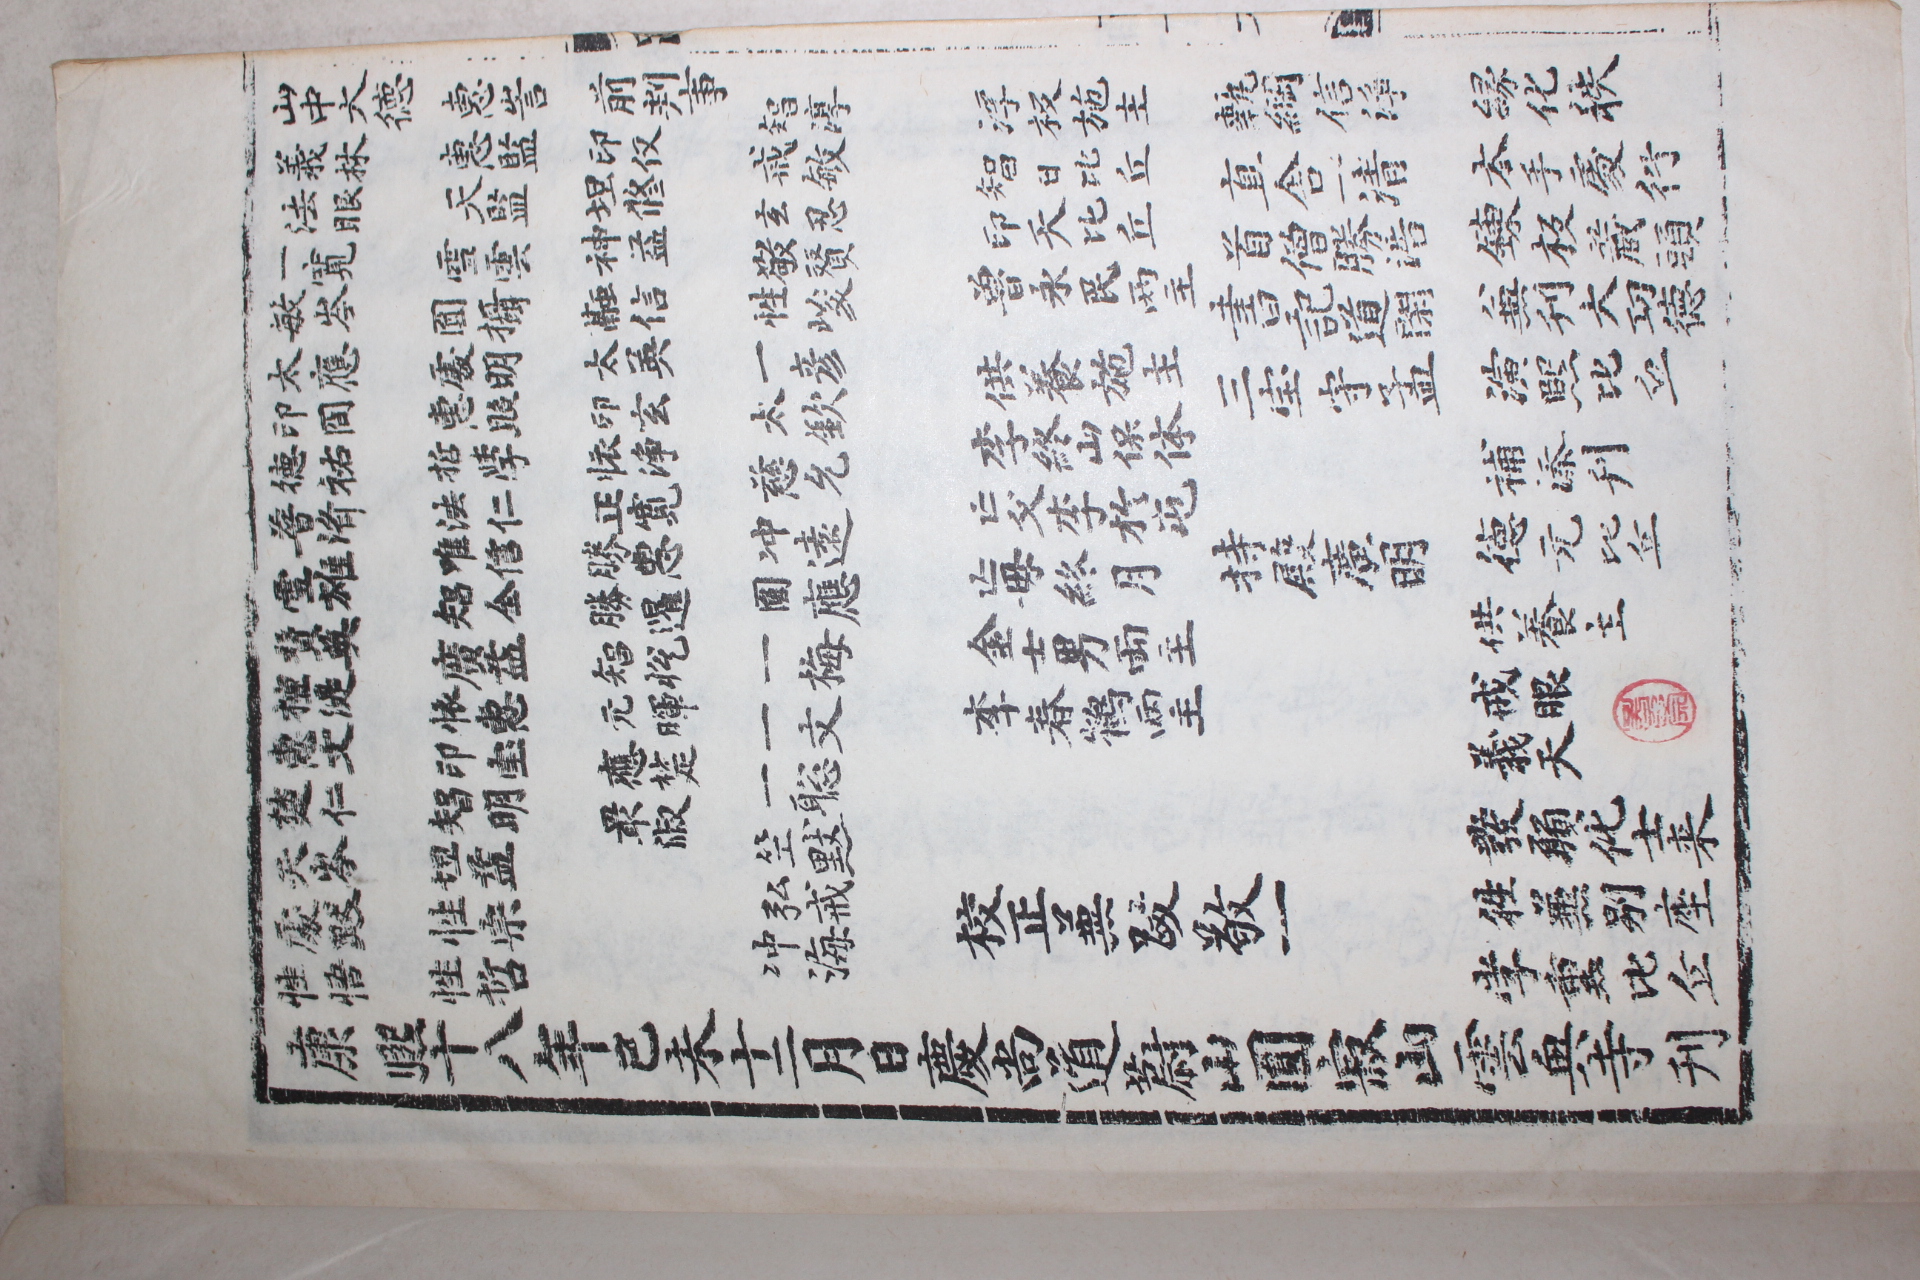 山中大德
義林
法眼
一寬
敏岑
太應
印閻
德祐
普濟
雪雄
贊英
惠文
楚仁
天岑
處默
性悟
惠訔
惠監
天監
雪雲
圓攝
處明
惠眼
哲學
法仁
唯信
智全
廣益
懷惠
印宝
智明
坦益
性崇
性哲
前判事
印仅
坦修
神益
融信
太英
印玄
懷淨
正寬
勝惠
勝暹
元暉
應楚
最淑
智淳
戒敏
玄忍
敬賢
性峻
一彦
太欽
慈允
冲遠
圓應
一梅
一文
一聡
笠默
弘戒
冲海
浮板施主
智日比丘
印天比丘
曾永民兩主
供養施主
李終山保体
亡父李於屯
亡母終月
金士男兩主
李春鶴兩主
校正無跋敬一
執綱信淨
直舍一清
首僧勝浩
書記道閑
三宝守孟
持殿廣明
緣化秩
本手處行
鍊板藏頭
兼刊大功德
演熙比丘
補添刊
德元比丘
供養主
戒眼
義天
發願化士来
雄兼別座
學熏比丘
康熙十八年己未十二月日慶尚道蔚山圓寂山雲興寺刊